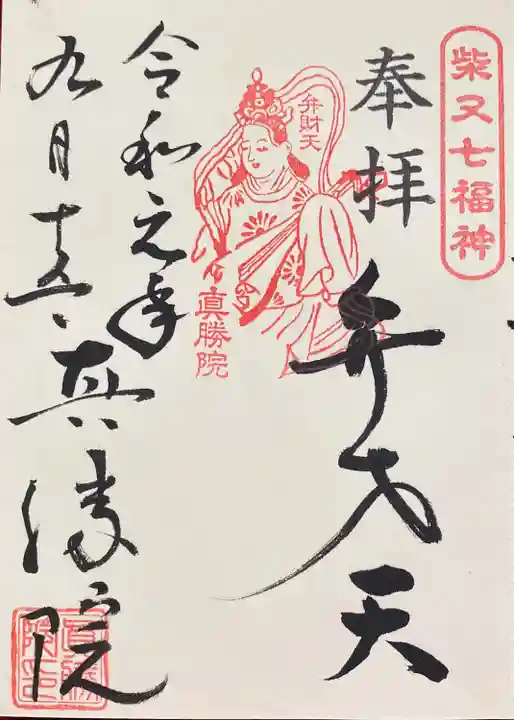 柴又七福神
奉拝
弁才天
弁財天
真勝院
令和元年
九月十五日
真勝院
眞勝院印